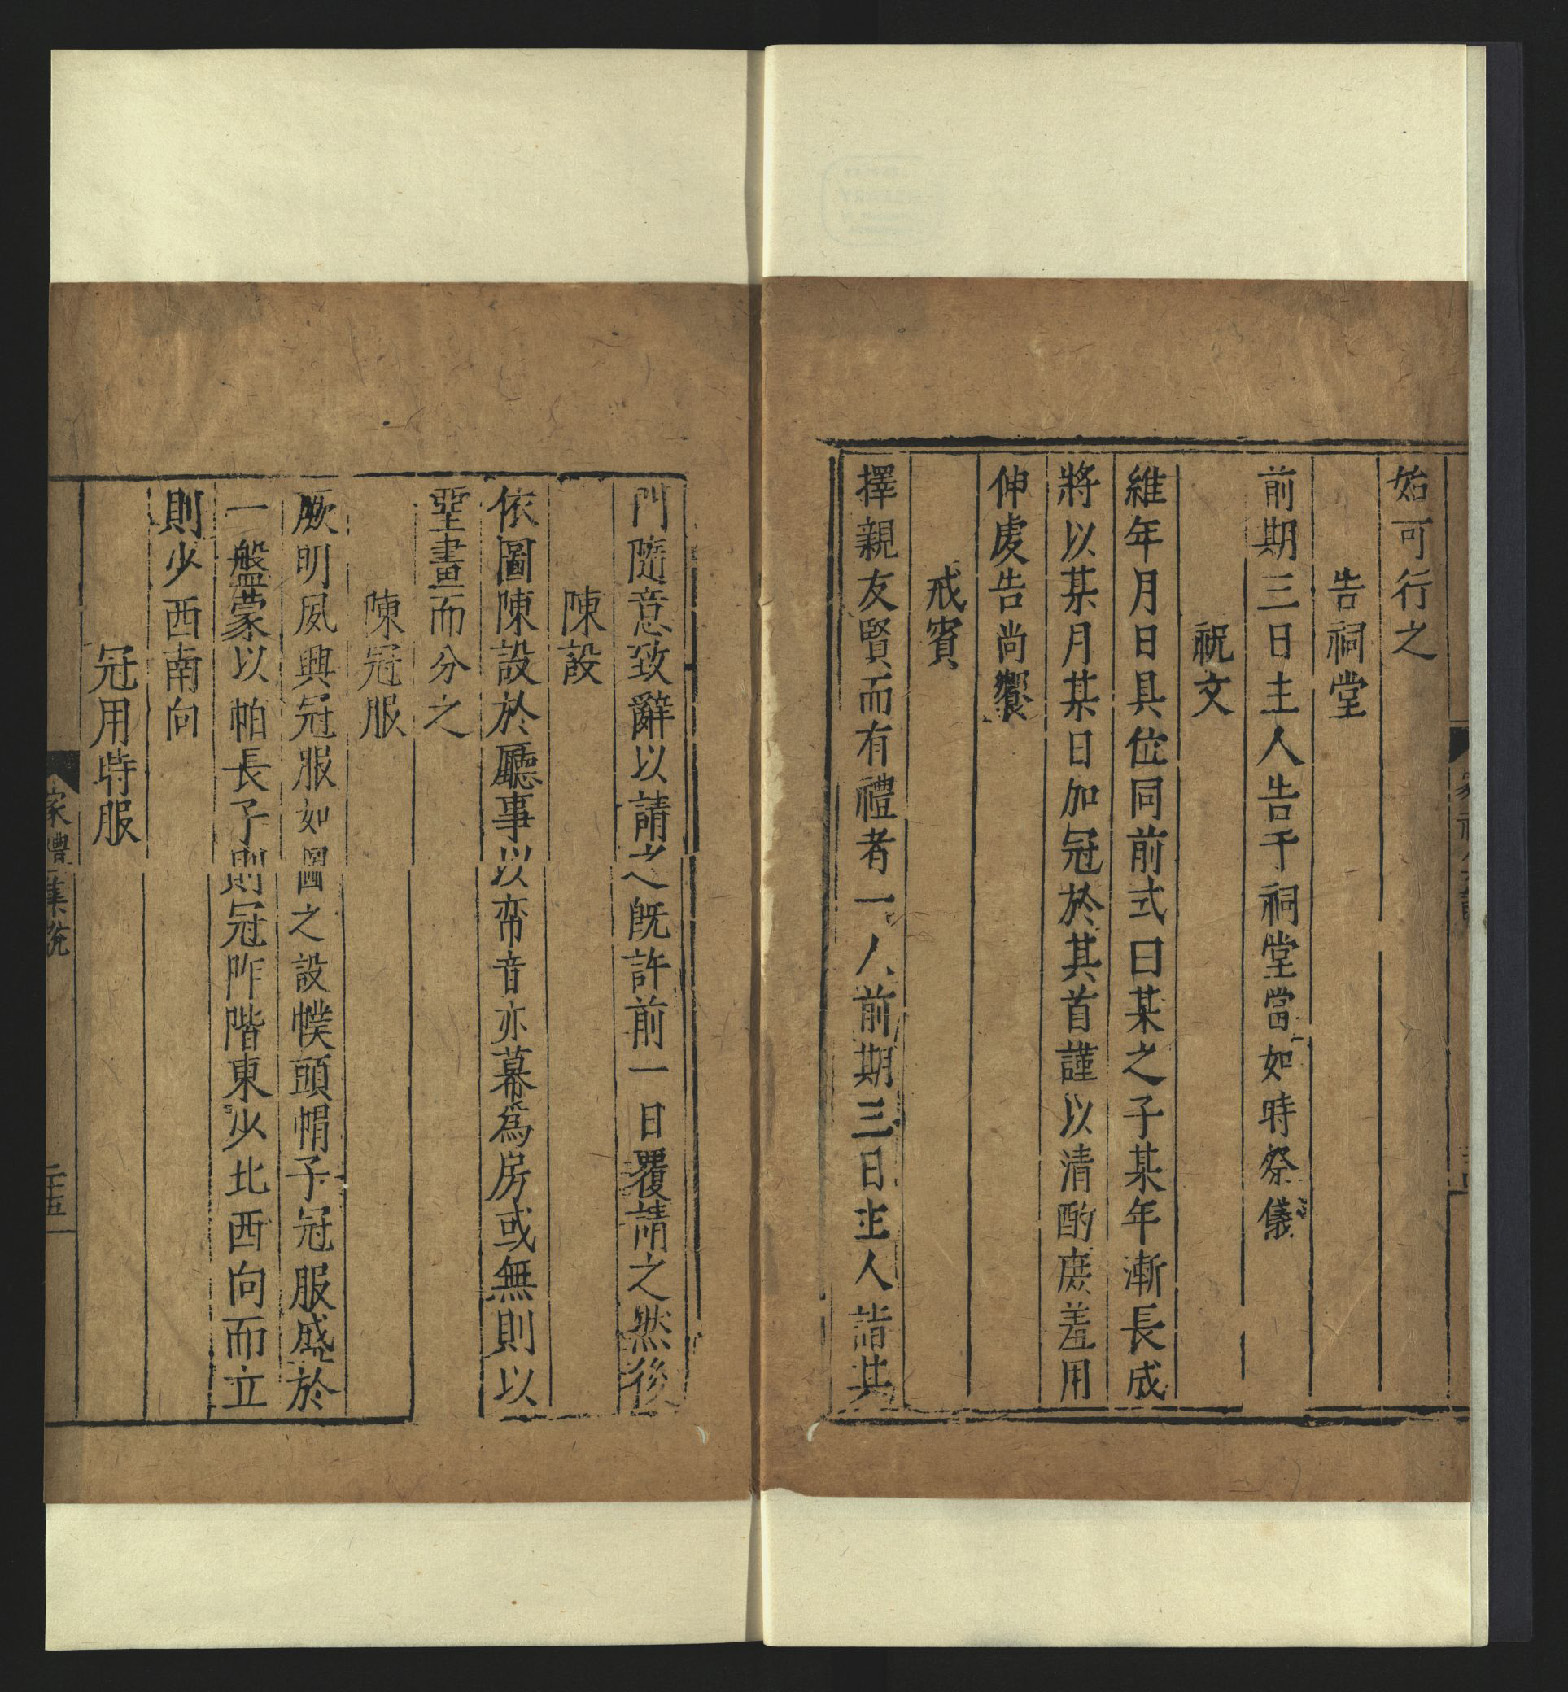 始可行之
告祠堂
前期三日主人告于祠堂當如時祭儀
祝文
維年月日具位同前式曰某之子某年漸長成
將以某月某日加冠於其首謹以清酌庶羞用
伸虔告尚饗
戒賓
擇親友賢而有禮者一人前期三日主人詣其
門隨意致辭以請之既許前一日覆請之然後
陳設
依圖陳設於廳事以帟音亦幕為房或無則以
堊畫而分之
陳冠服
厥明夙興冠服如圖之設幞頭帽子冠服盛於
一盤蒙以帕長子則冠阼階東少北西向而立
則少西南向
冠用時服
家禮集說 二十五